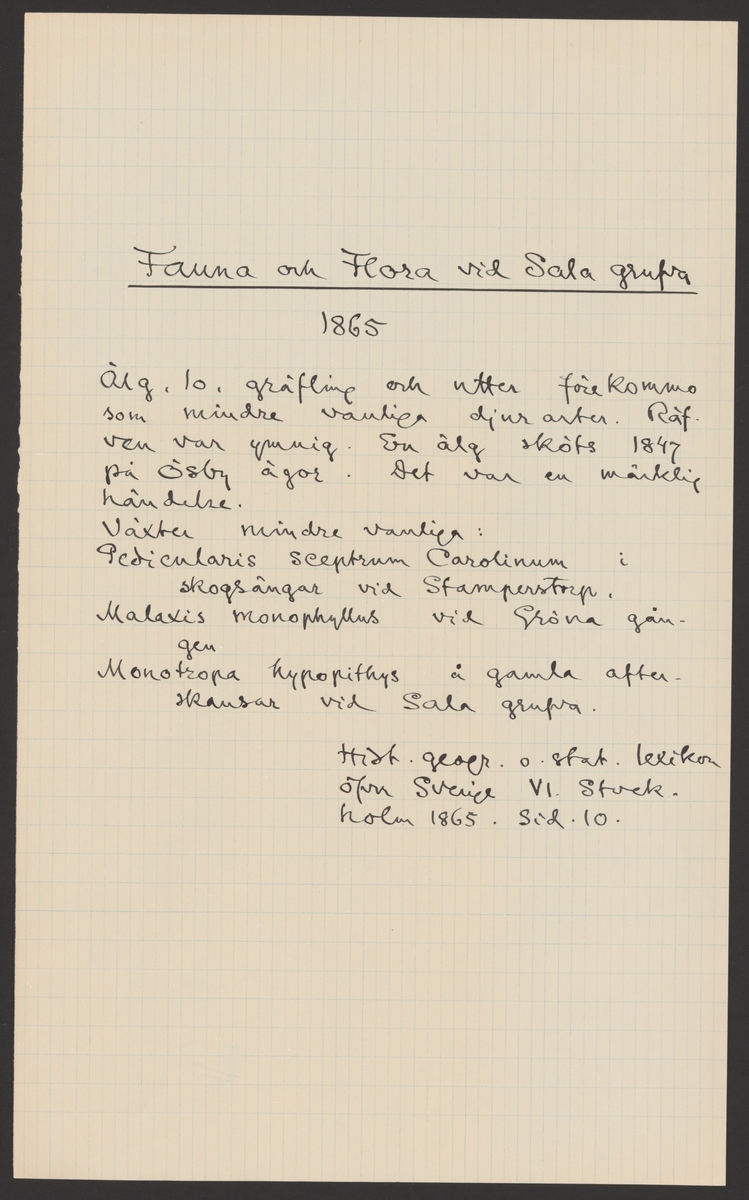 Fauna och Flora vid Sala grufva
1865
Älg, lo, gräfling och utter förekommo
som mindre vanliga djurarter. Räf-
ven var ymnig. En älg sköts 1847
på Ösby ägor. Det var en märklig
händelse.
Växter mindre vanliga:
Pedicularis sceptrum Carolinum i
skogsängar vid Stamperstorp.
Malaxis monophyllus vid Gröna gån-
gen
Monotropa hypopithys å gamla after-
skansar vid Sala grufva.
Hist. geogr. o. stat. lexikon
öfvr Sverige VI. Stock-
holm 1865. Sid. 10.